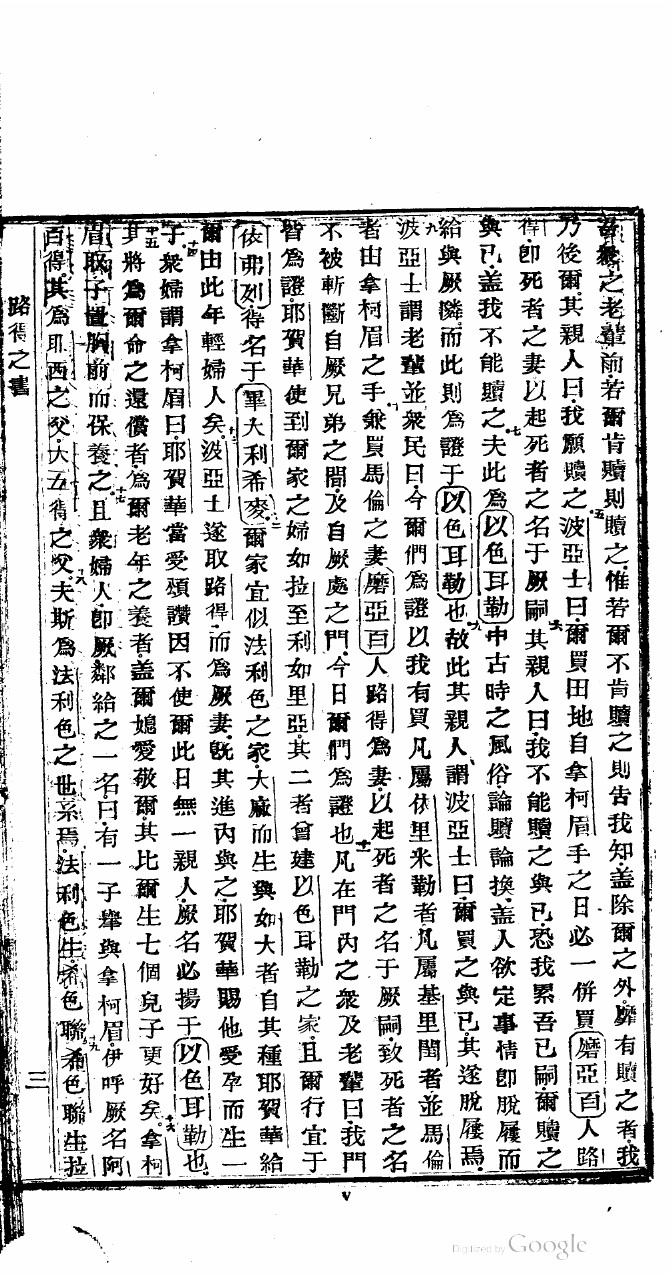 吾衆之老輩前若爾肯贖則贖之惟若爾不肯贖之則告我知蓋除爾之外靡有贖之者我
乃後爾其親人曰我願贖之波亞士曰爾買田地自拿柯眉手之日必一併買磨亞百人路
得卽死者之妻以起死者之名于厥嗣其親人曰我不能贖之與己恐我累吾己嗣爾贖之
與己蓋我不能贖之夫此爲以色耳勒中古時之風俗論贖論換蓋人欲定事情卽脫屨而
給與厥隣而此則爲證于以色耳勒也故此其親人謂波亞士曰爾買之與己其遂脫屨焉
波亞士謂老輩並衆民曰今爾們爲證以我有買凡屬依里米勒者凡屬基里閏者並馬倫
者由拿柯眉之手兼買馬倫之妻磨亞百人路得爲妻以起死者之名于厥嗣致死者之名
不被斬斷自厥兄弟之間及自厥處之門今日爾們爲證也凡在門內之衆及老輩曰我門
皆爲證耶賀華使到爾家之婦如拉至利如里亞其二者曾建以色耳勒之家且爾行宜于
依弗列得名于畢大利希麥爾家宜似法利色之家大麻而生與如大者自其種耶賀華給
爾由此年輕婦人矣波亞士遂取路得而爲厥妻旣其進內與之耶賀華賜他受孕而生一
子衆婦謂拿柯眉曰耶賀華當受頌讚因不使爾此日無一親人厥名必揚于以色耳勒也
其將爲爾命之還償者爲爾老年之養者蓋爾媳愛敬爾其比爾生七個兒子更好矣拿柯
眉取子置胸前而保養之且衆婦人卽厥鄰給之一名曰有一子舉與拿柯眉伊呼厥名阿
百得其爲耶西之父大五得之父夫斯爲法利色之世系焉法利色生希色聯希色聯生拉
路得之書
三
v
Digitized by Google